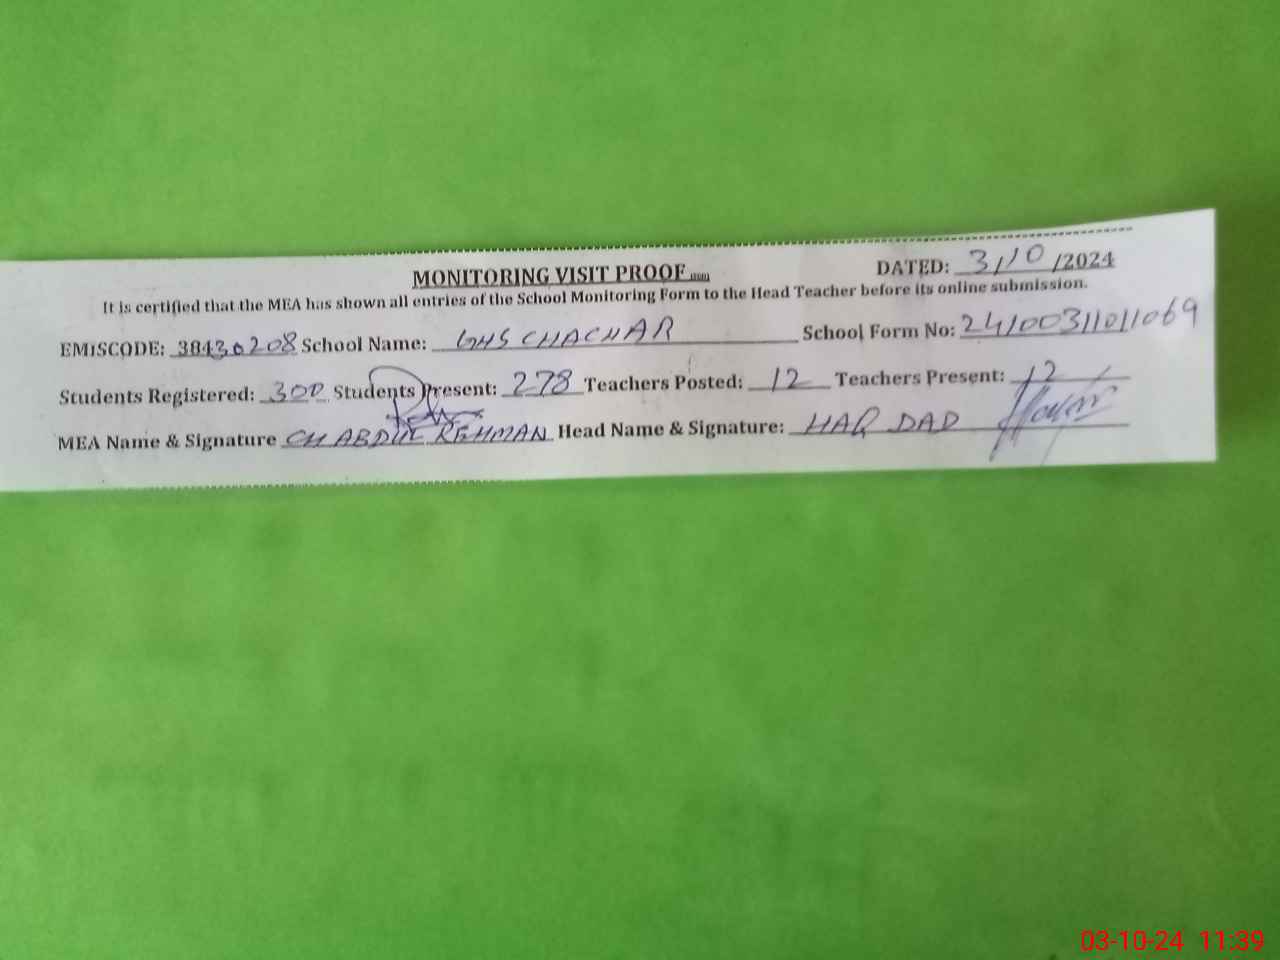 MONITORING VISIT PROOF DATED: 3/10/2024
It is certified that the MEA has shown all entries of the School Monitoring Form to the Head Teacher before its online submission.
EMISCODE: 38430208 School Name: GHS CHACHAR School Form No: 24100311011069
Students Registered: 300 Students Present: 278 Teachers Posted: 12 Teachers Present: 12
MEA Name & Signature CH ABDUL REHMAN Head Name & Signature: HAQ DAD
03-10-24 11:39